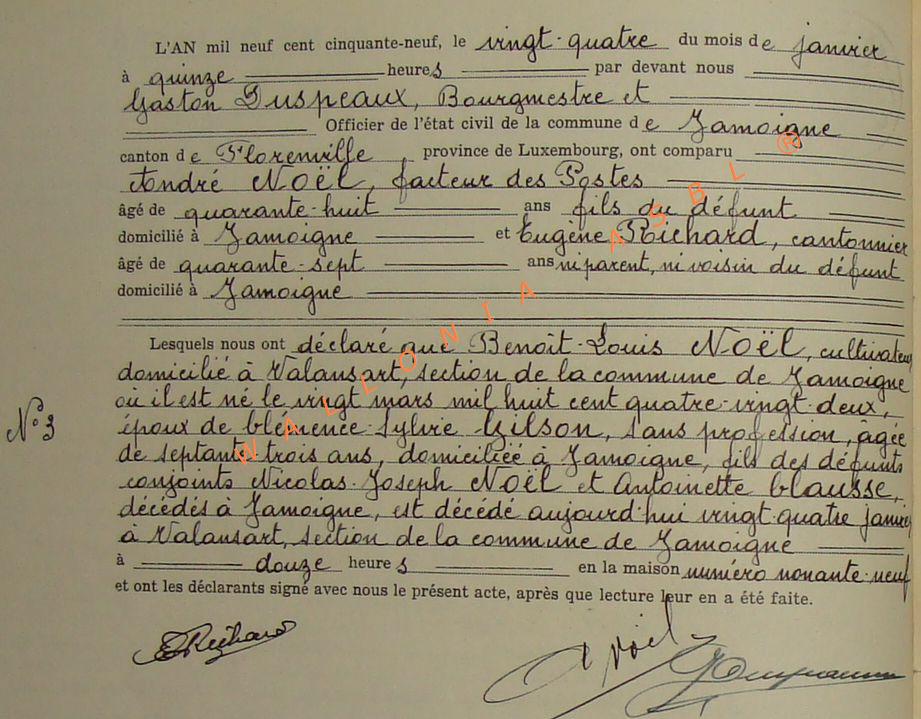 L'AN mil neuf cent cinquante-neuf, le vingt-quatre du mois de janvier
à quinze heures par devant nous
Gaston Duspeaux, Bourgmestre et
Officier de l'état civil de la commune de Jamoigne
canton de Florenville, province de Luxembourg, ont comparu
André NOËL, facteur des Postes
âgé de quarante-huit ans fils du défunt
domicilié à Jamoigne et Eugène Richard, cantonnier
âgé de quarante-sept ans ni parent, ni voisin du défunt
domicilié à Jamoigne
Lesquels nous ont déclaré que Benoît-Louis NOËL, cultivateur
domicilié à Valansart, section de la commune de Jamoigne
où il est né le vingt mars mil huit cent quatre-vingt-deux,
époux de Clémence-Sylvie Gilson, sans profession, âgée
de septante-trois ans, domiciliée à Jamoigne, fils des défunts
conjoints Nicolas-Joseph NOËL et Antoinette Clausse,
décédés à Jamoigne, est décédé aujourd'hui vingt-quatre janvier
à Valansart, section de la commune de Jamoigne
à douze heures en la maison numéro nonante-neuf
et ont les déclarants signé avec nous le présent acte, après que lecture leur en a été faite.
N° 3
E Richard
A Noël
WALLONIA ASBL ®